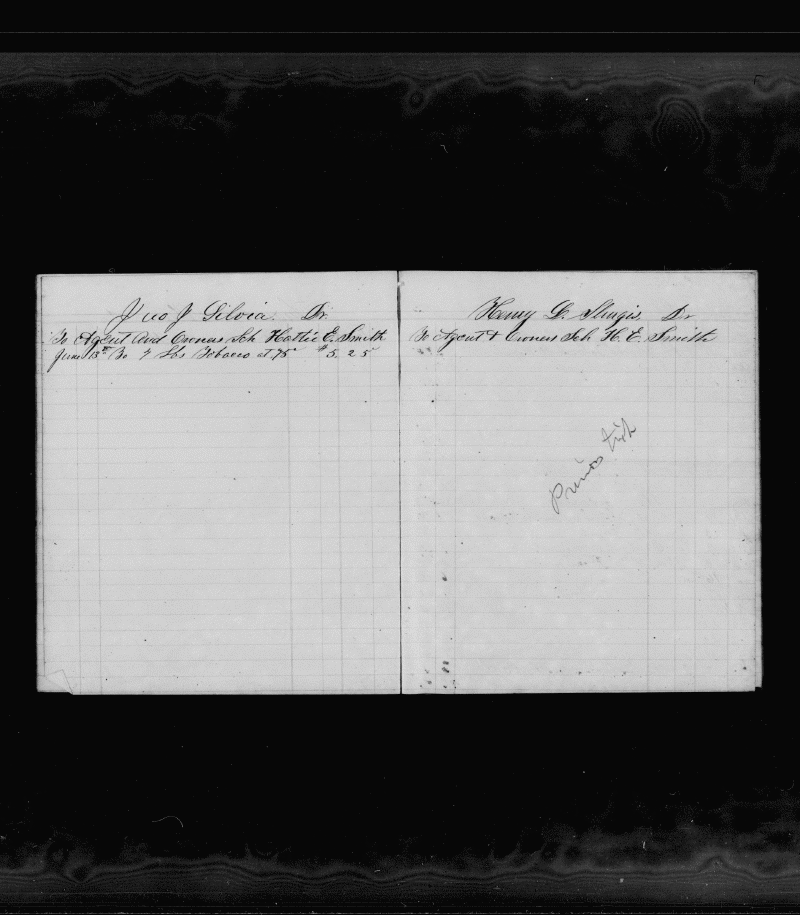 Jno J Silvia. Dr.
To Agent and Owners Sch Hattie E. Smith
June 13th To 7 Lbs Tobacco at 75 $ 5, 25
Henry D. Sturgis. Dr
To Agent & Owners Sch H. E. Smith